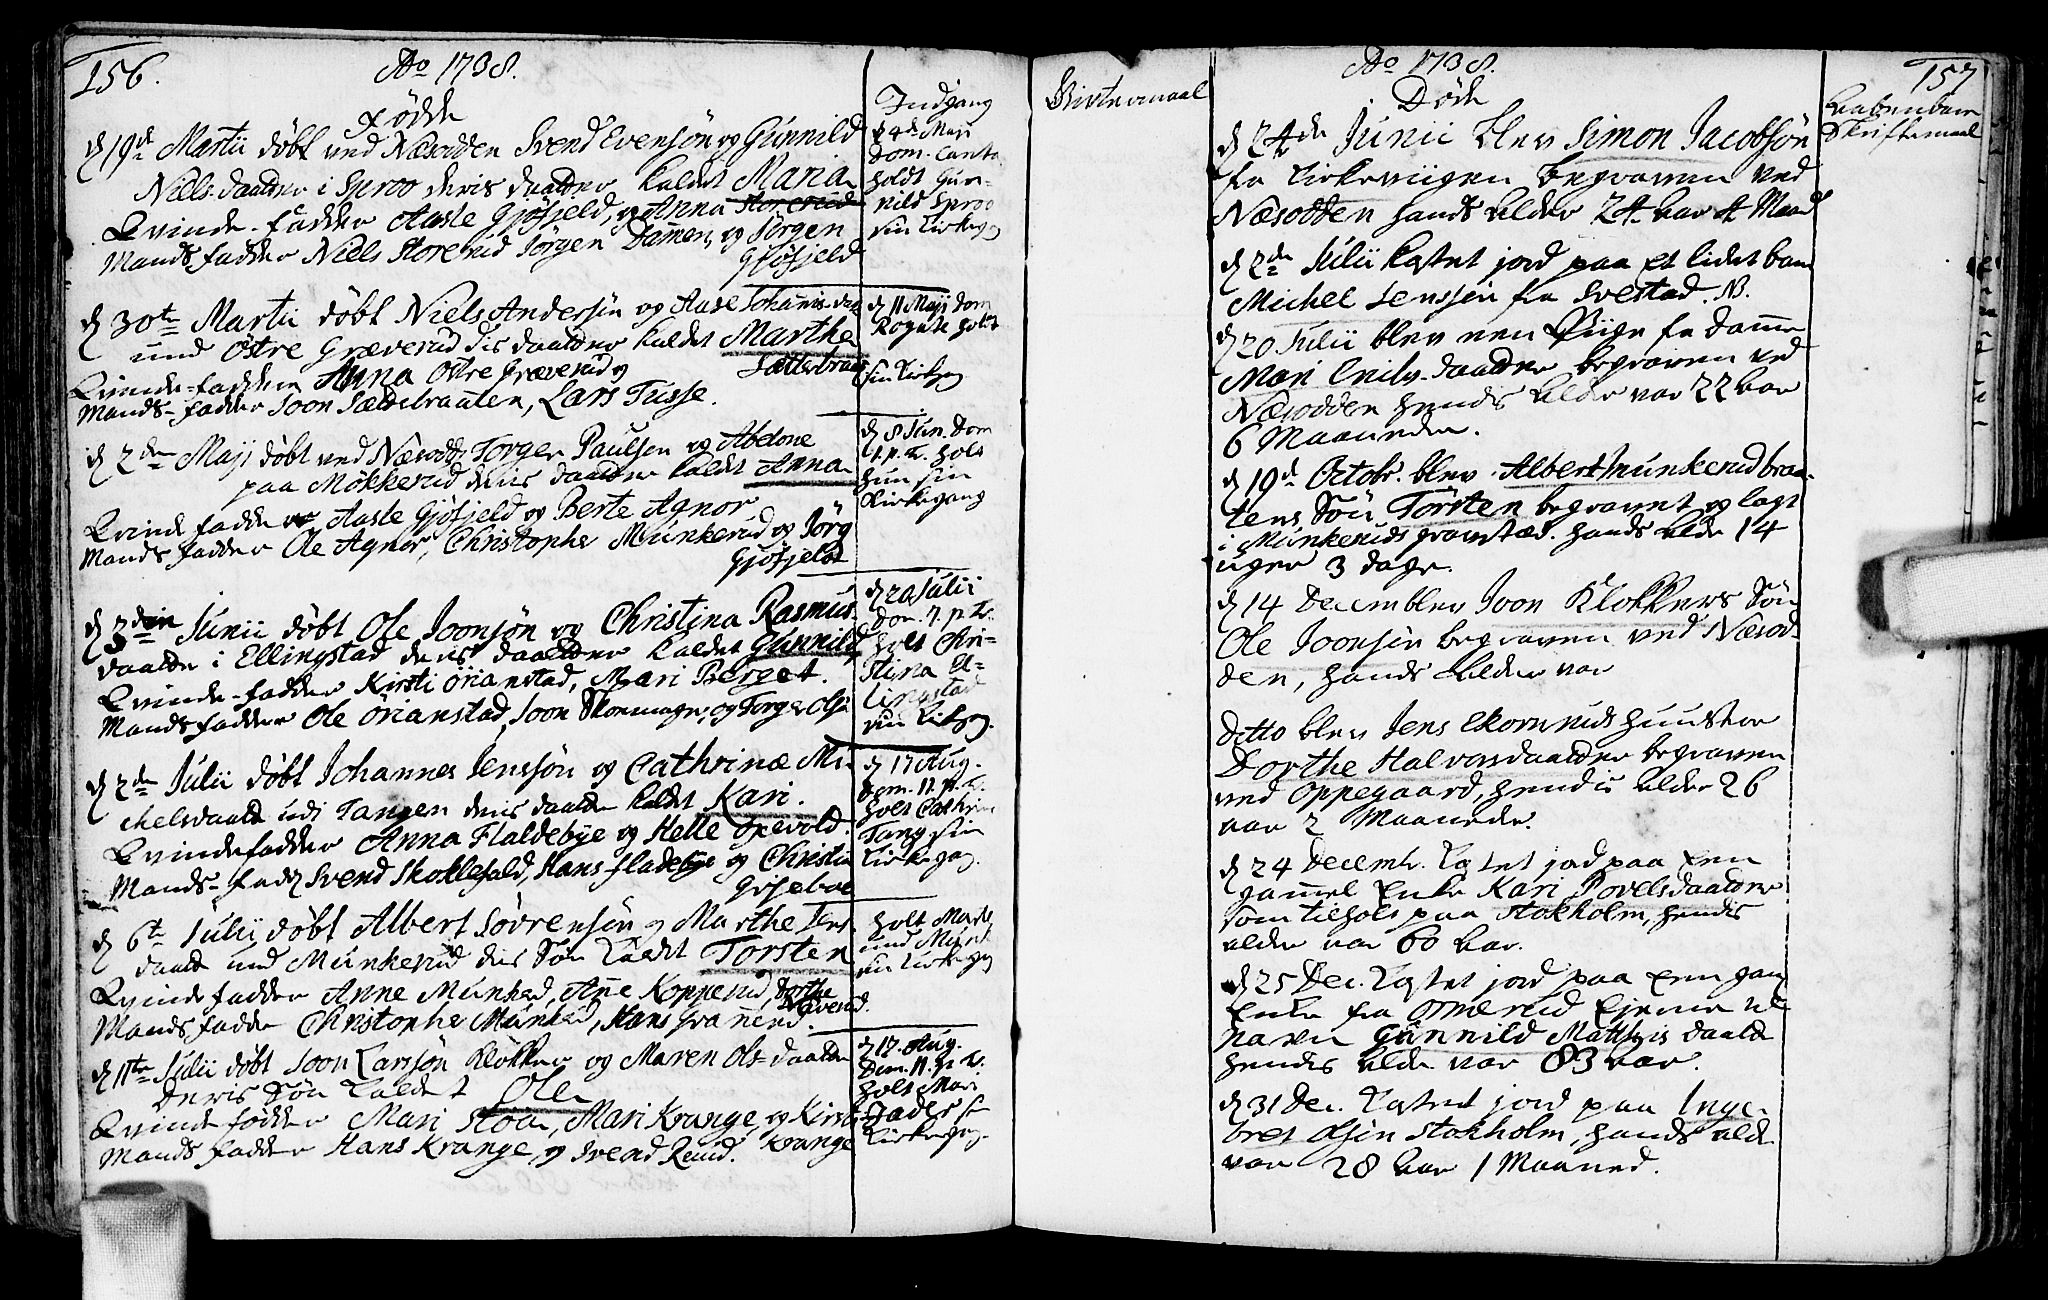 156.
Ao 1738.
Fødde
Indgang
d 19de Martii døbt ved Næsodden Svend Evensøn og Gunnild
Niels daatter i Sproo deris daatter kaldet Maria
Qvinde-fadder Aaste Gjøfjeld, og Anna Storerud
Mands fadder Niels Storerud Jørgen Damen, og Jørgen
Gjøfjeld
d 4de Maji
Dom. Canta
holdt Gun-
nild Sproo
sin Kirkegg
d 30te Martii døbt Niels Andersøn og Aase Johannisdaa
und Østre Græverud dis daatter kaldet Marthe
Qvinde-faddere Anna Østre Græverud og Sætterbraat
Mands-fadder Joon Sældebraaten, Lars Tusse.
d 11 Maji Dom
Rogate holt
sin Kirkgag
d 2den Maji døbt ved Næsodd Torger Paulsen og Abelone
paa Møkkerud deris daatter kaldet Anna
Qvinde fadder Aaste Gjøfjeld og Berte Agnor
Mands fadder Ole Agnor, Christopher Munkerud og Jørg
Gjøfjeldt
d 8 Jun. Dom
1. p. Tr. holt
hun sin
Kirkegang
d 3die Junii døbt Ole Joonsøn og Christina Rasmus
daatter i Ellingstad deris daatter kaldet Gunnild
Qvinde-fadder Kirsti Ørianstad, Mari Berget.
Mands fadder Ole Ørianstad, Joon Skoemager, og Torger Olsø
d 20 Julii
Dom. 7. p Tr.
holt Chri-
stina El-
lingstad
sin Kirkgag.
d 2de Julii døbt Johannes Jenssøn og Cathrinæ Mi-
chelsdaatt udi Tangen deris daatter kaldet Kari.
Qvindefadder Anna Flaldebye og Helle Opevold.
Mands-fadd Svend Skoklefald, Hans fladebye og Christia
Gjseboe
d 17 Aug.
Dom. 11. p. Tr.
holt Cathrin
Tang sin
Kirkegag.
d 6te Julii døbt Albert Sørrensøn og Marthe Jens
daatt und Munkerud dis Søn kaldet Torsten
Qvinde fadder Anne Munkerd, Ane Kopperud, Dorthe
Mands fadde Christopher Munkerd, Hans Graverud.
holt Marte
und Munk
sin Kirkegag
d 11te Julii døbt Joon Larssøn Klokker og Maren Ols-daatter
Deris Søn kaldet Ole
Qvinde fødder Mari Støa, Mari Krange, og Kirsti
Mands fadder Hans Krange, og Svend Ruud. Krange
d 17. Aug.
Dom. 11. p Tr.
holt Mari
Kirkegag.
157
Ao 1738.
Døde
d 24de Junii blev Simon Jacobsøn
fra Kirkeviigen begraven ved
Næsodden hands alder 24 aar 4 Maand
d 2de Julii kastet jord paa et lidet barn
Michel Jenssøn fra Svestad. N.
d 20 Julii blev een Piige fra Damme
Mari Enils-daatter begraven ved
Næsodden hendis alder var 22 aar
6 Maaneder.
d 19d Octobr. blev Albert Munkerudbraa-
tens Søn Torsten begravet og lagt
i Munkeruds gravsted. hands alder 14
uger 3 dage.
d 14 Decem blev Joon Klokkers Søn
Ole Joonsøn begraven ved Næsod-
den, hands alder var
Ditto blev Jens Ekornruds hustroe
Dorthe Halvorsdaatter begraven
ved Oppegaard, hendis alder 26
aar 2 Maaneder.
d 24 Decemb. kastet jord paa een
gammel Enke Kari Povelsdaatter
som tilholt paa Stokholm, hendis
alder var 60 aar.
d 25 Dec. kastet jord paa een gam
Enke fra Ommerud
Gunnild Matthis daatt
hendes alder var 83 aar.
d 31 Dec. kastet jord paa Inge-
bret Olsøn Stokholm, hands alde
var 28 aar 1 Maaned.